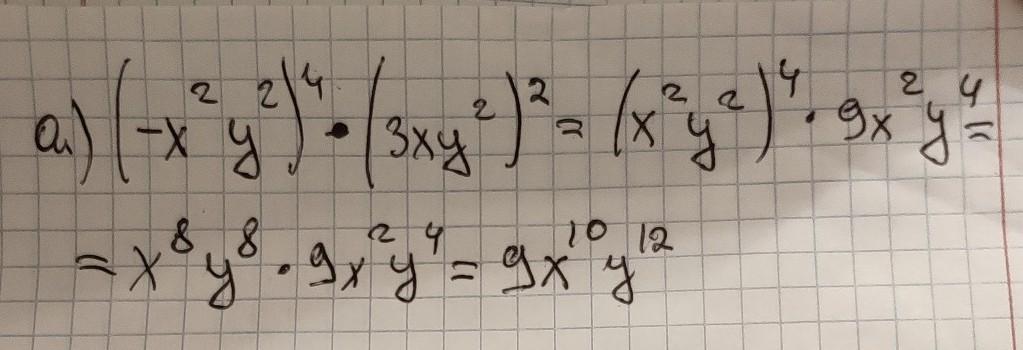 а) (-x²y²)⁴ • (3xy²)² = (x²y²)⁴ · 9x²y⁴ =
= x⁸y⁸ · 9x²y⁴ = 9x¹⁰y¹²